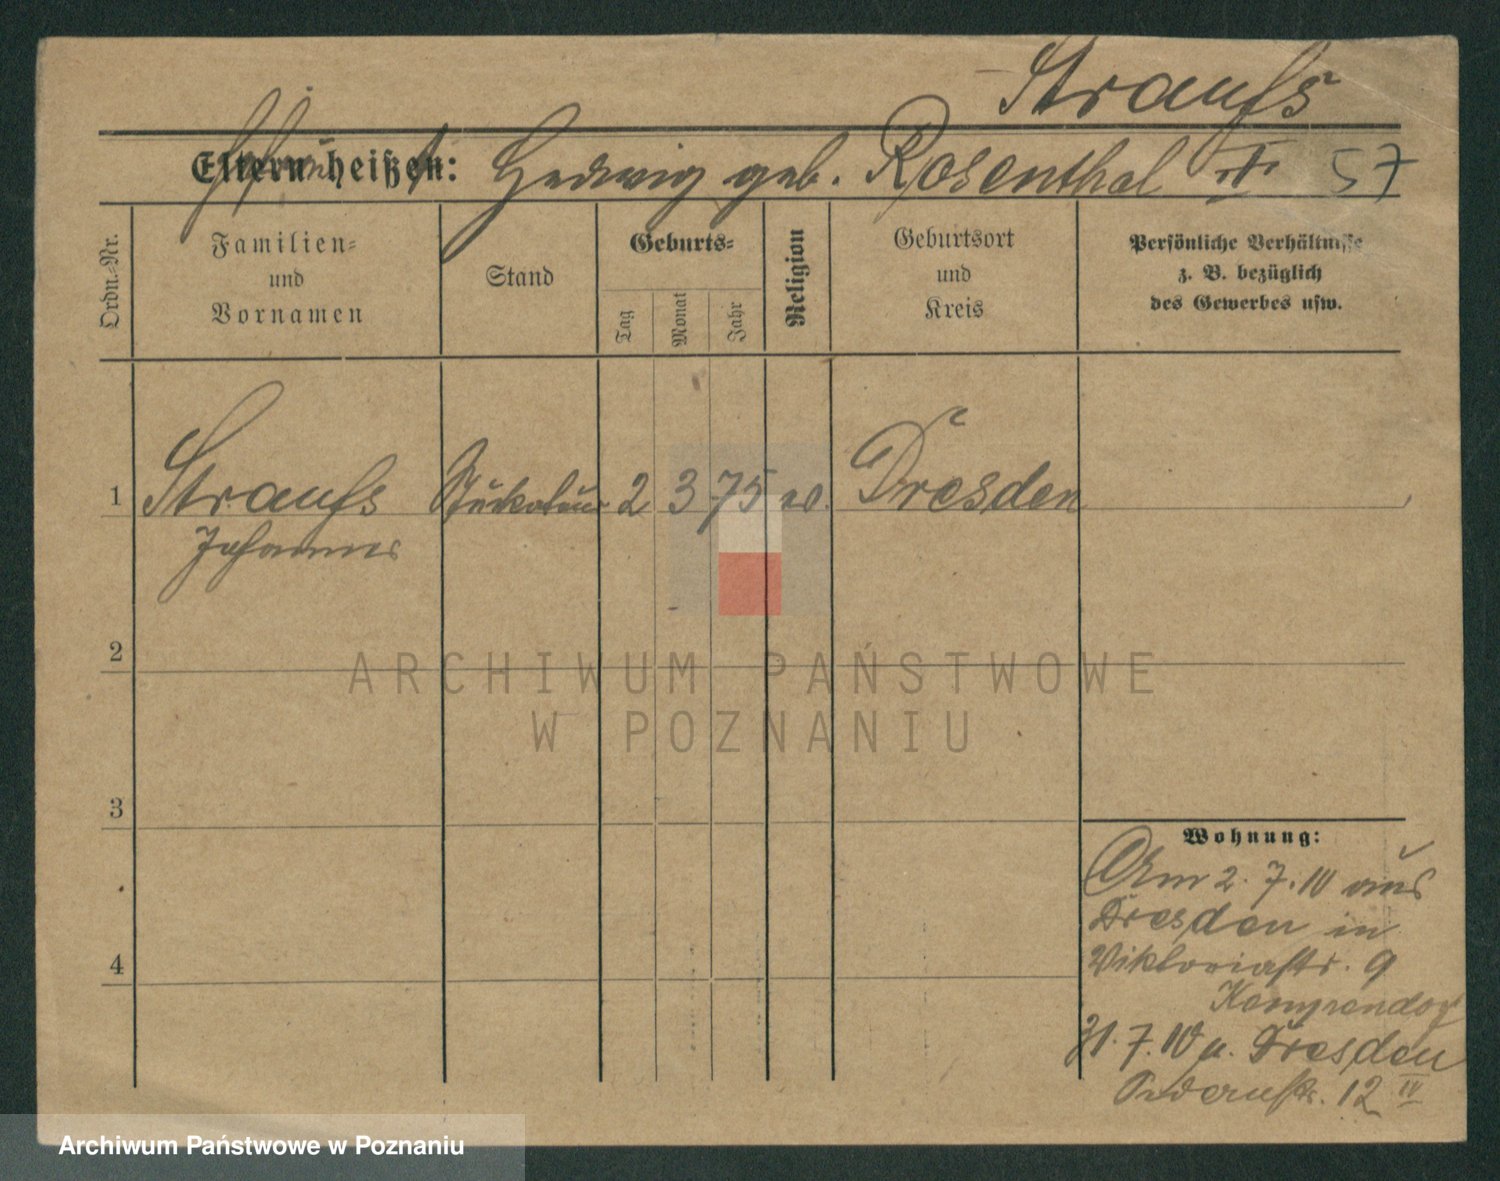 Straufs
Eltern heißen: Hedwig geb. Rosenthal II 57
Ordn.-Nr.
Familien-
und
Vornamen
Stand
Geburts-
Tag
Monat
Jahr
Religion
Geburtsort
und
Kreis
Persönliche Verhältnisse
z. B. bezüglich
des Gewerbes usw.
1 Straufs Stuckateur 2 3 75 ev. Dresden
Johannes
2
3
4
Wohnung:
Am 2. 7. 10 aus
Dresden in
Viktoriastr. 9
31. 7. 10 n. Dresden
12 IV
ARCHIWUM PAŃSTWOWE
W POZNANIU
Archiwum Państwowe w Poznaniu